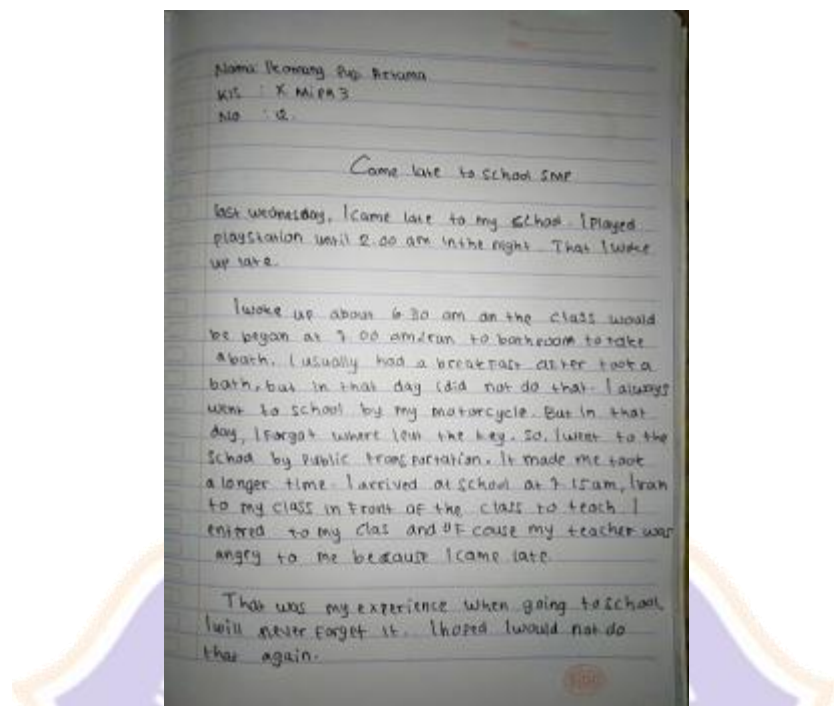 Nama: Komang
Kls : X MIPA 3
No : 2.
Came late to school SMP
last wednesday, I came late to my school. I Played
playstation until 2.00 am in the night That I woke
up late.
I woke up about 6 30 am an the class would
be began at 7 00 am I run to bathroom to take
a bath. I usually had a breakfast after took a
bath, but in that day I did not do that. I always
went to school by my motorcycle. But in that
day, I Forgot where the key. So, I went to the
School by Public transportation. It made me took
a longer time. I arrived at school at 7 15 am, I ran
to my class in Front of the class to teach I
entered to my clas and OF couse my teacher was
angry to me because I came late
That was my experience when going to school
I will never Forget it. I hoped I would not do
that again.